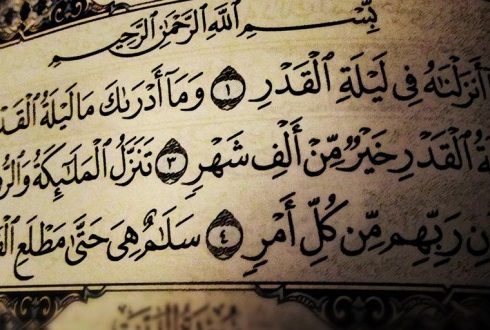 بِسْمِ اللَّهِ الرَّحْمَٰنِ الرَّحِيمِ
أَنزَلْنَٰهُ فِى لَيْلَةِ ٱلْقَدْرِ ١ وَمَآ أَدْرَىٰكَ مَا لَيْلَةُ ٱلْقَدْ
ةُ ٱلْقَدْرِ خَيْرٌ مِّنْ أَلْفِ شَهْرٍ ٣ تَنَزَّلُ ٱلْمَلَٰٓئِكَةُ وَٱلرُّو
نِ رَبِّهِم مِّن كُلِّ أَمْرٍ ٤ سَلَٰمٌ هِىَ حَتَّىٰ مَطْلَعِ ٱلْفَ